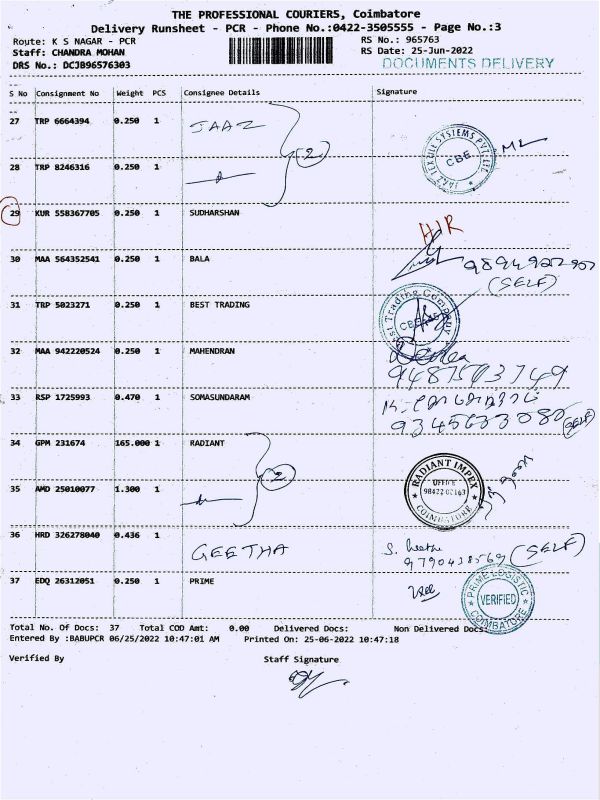 THE PROFESSIONAL COURIERS, Coimbatore
Delivery Runsheet - PCR - Phone No.:0422-3505555 - Page No.:3
Route: K S NAGAR - PCR
RS No.: 965763
Staff: CHANDRA MOHAN
RS Date: 25-Jun-2022
DRS No.: DCJB96576303
DOCUMENTS DELIVERY
S No Consignment No Weight PCS Consignee Details Signature
27 TRP 6664394 0.250 1 JAAZ
(2)
JAAZ TEXTILE SYSTEMS PVT. LTD. CBE
28 TRP 8246316 0.250 1
29 KUR 558367705 0.250 1 SUDHARSHAN
HIR
30 MAA 564352541 0.250 1 BALA
(SELF)
31 TRP 5023271 0.250 1 BEST TRADING
Best Trading Company
32 MAA 942220524 0.250 1 MAHENDRAN
33 RSP 1725993 0.470 1 SOMASUNDARAM
(SELF)
34 GPM 231674 165.000 1 RADIANT
(2)
RADIANT IMPEX OFFICE COIMBATORE
35 AMD 25010077 1.300 1
36 HRD 326278040 0.436 1 GEETHA
S. Geetha
9790438569 (SELF)
37 EDQ 26312051 0.250 1 PRIME
PRIME LOGISTIC VERIFIED COIMBATORE
Total No. Of Docs: 37 Total COD Amt: 0.00 Delivered Docs: Non Delivered Docs:
Entered By :BABUPCR 06/25/2022 10:47:01 AM Printed On: 25-06-2022 10:47:18
Verified By Staff Signature